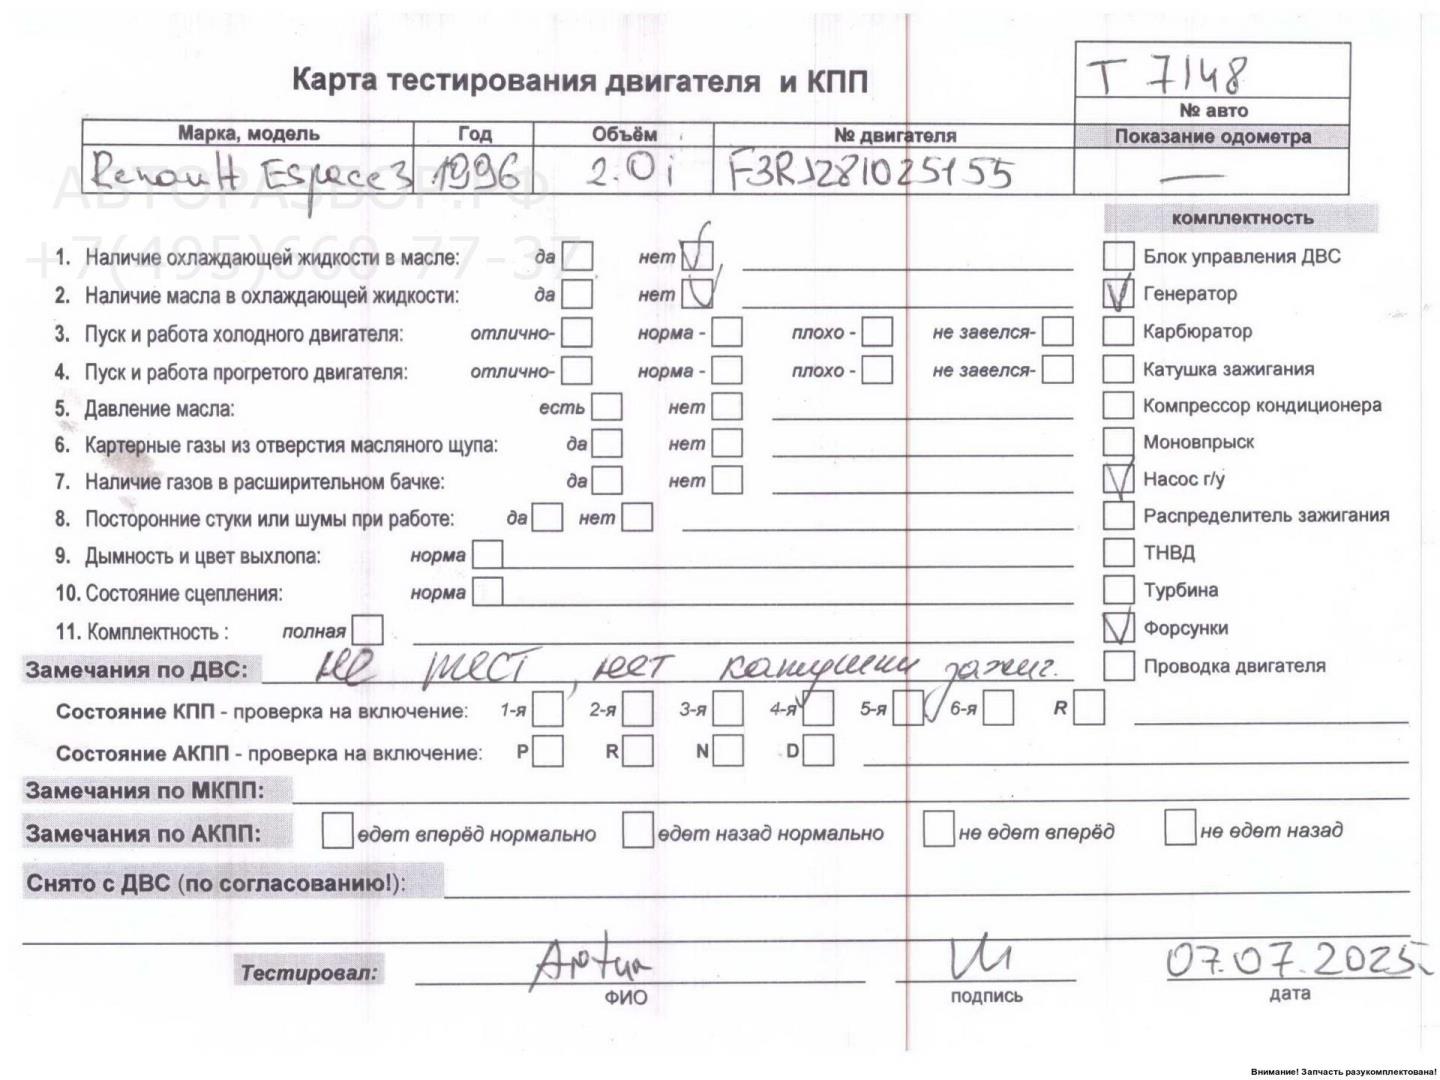 Карта тестирования двигателя и КПП
Т 7148
№ авто
Марка, модель Год Объём № двигателя Показание одометра
Renault Espace 3 1996 2.0i F3R J281025155 —
АВТОРАЗБОР.РФ
+7(495)660-77-37
комплектность
1. Наличие охлаждающей жидкости в масле: да нет
Блок управления ДВС
2. Наличие масла в охлаждающей жидкости: да нет
Генератор
3. Пуск и работа холодного двигателя: отлично- норма - плохо - не завелся-
Карбюратор
4. Пуск и работа прогретого двигателя: отлично- норма - плохо - не завелся-
Катушка зажигания
5. Давление масла: есть нет
Компрессор кондиционера
6. Картерные газы из отверстия масляного щупа: да нет
Моновпрыск
7. Наличие газов в расширительном бачке: да нет
Насос г/у
8. Посторонние стуки или шумы при работе: да нет
Распределитель зажигания
9. Дымность и цвет выхлопа: норма
ТНВД
10. Состояние сцепления: норма
Турбина
11. Комплектность : полная
Форсунки
Замечания по ДВС: не тест, нет катушки зажиг.
Проводка двигателя
Состояние КПП - проверка на включение: 1-я 2-я 3-я 4-я 5-я 6-я R
Состояние АКПП - проверка на включение: P R N D
Замечания по МКПП:
Замечания по АКПП: едет вперёд нормально едет назад нормально не едет вперёд не едет назад
Снято с ДВС (по согласованию!):
Тестировал: Артur 07.07.2025
ФИО подпись дата
Внимание! Запчасть разукомплектована!